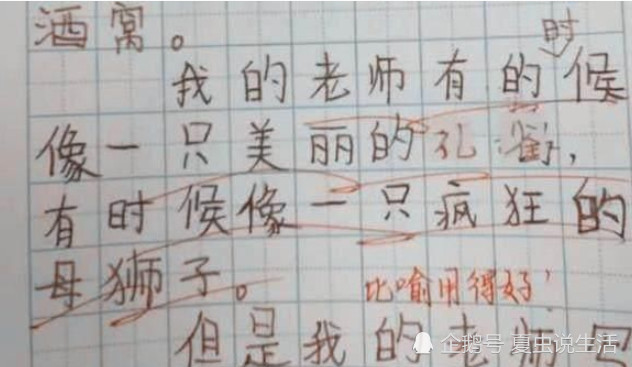 酒窝。
时
我的老师有的候
像一只美丽的孔
有时候像一只疯狂的
母狮子。
比喻用得好，
但是我的老师
企鹅号 夏虫说生活